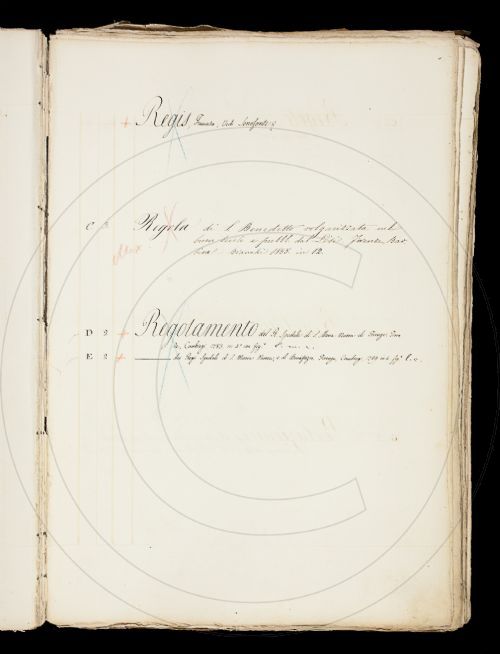 + Regis, Vedi
C 2 Regola di S. Benedetto volgarizzata nel
buon secolo e pubbl. dal Firenze Bar
bera Bianchi 1855 in 12.
D 2 + Regolamento del R. Spedale di S. Maria Nuova di Firenze, Firen
ze, Cambiagi 1783 in 4° con fig.
E 2 + ——— dei Regi Spedali di S. Maria Nuova, e di Bonifazio, Firenze, Cambiagi 1789 in 4 fig.